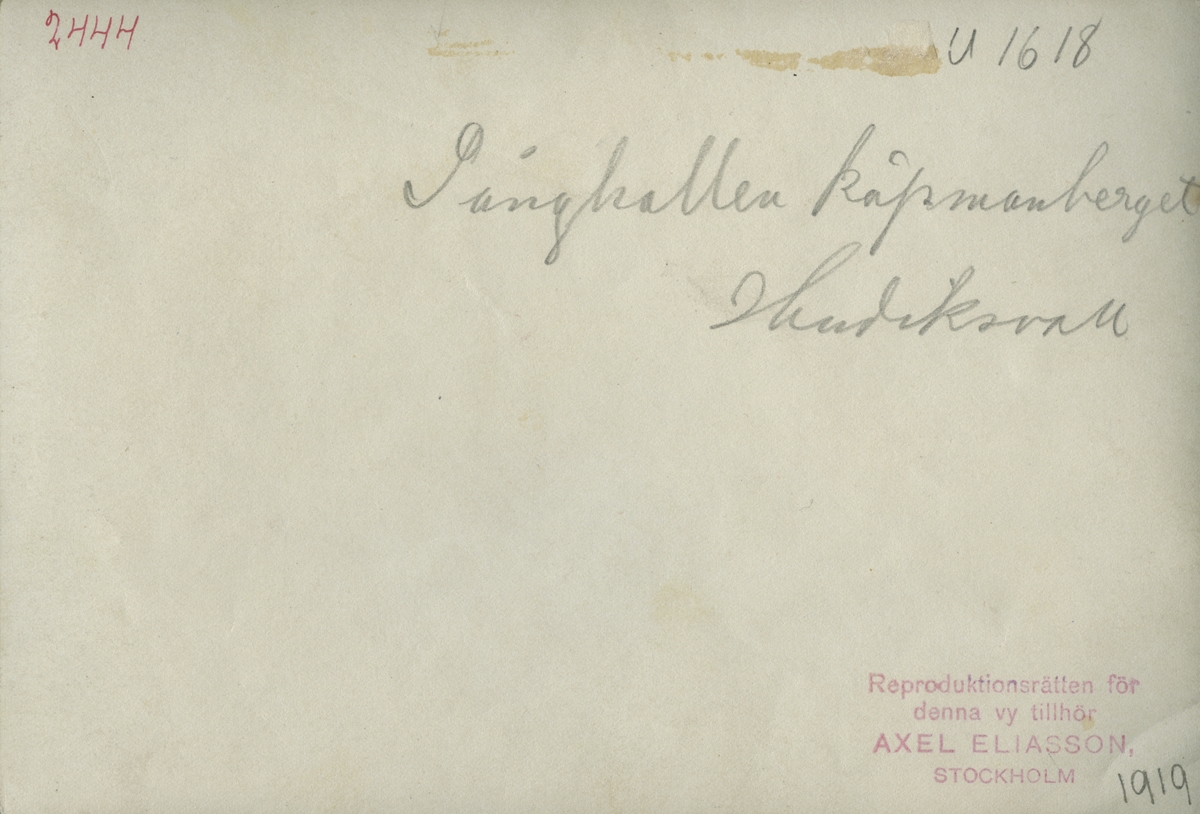 2444
U 1618
Sånghallen Köpmanberget
Hudiksvall
Reproduktionsrätten för
denna vy tillhör
AXEL ELIASSON,
STOCKHOLM
1919